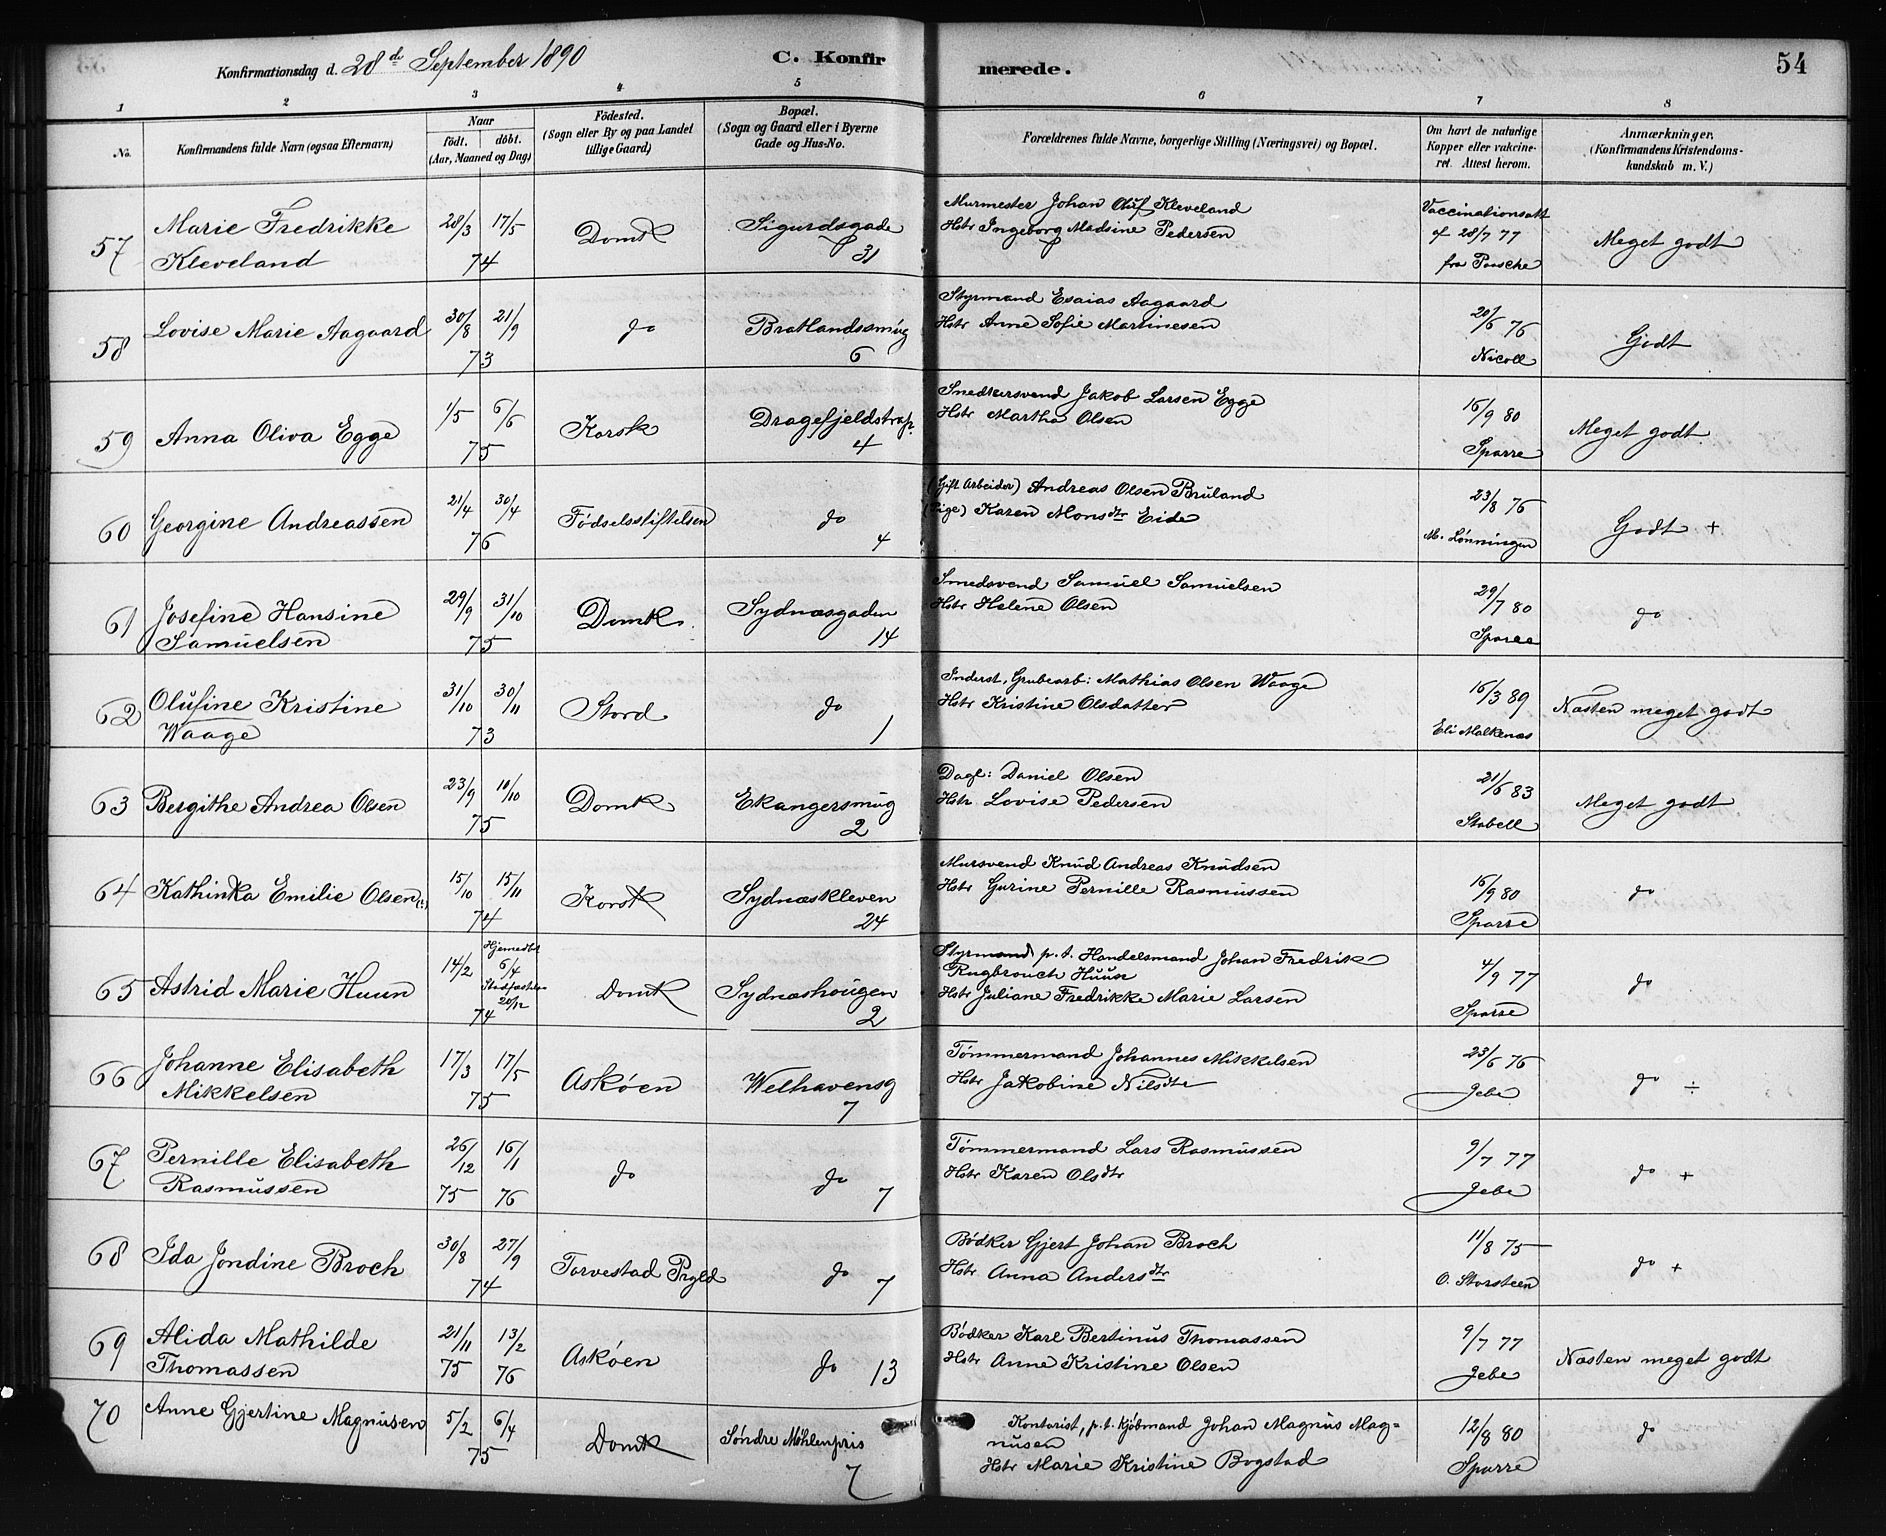 Konfirmationsdag d. 28de September 1890
C. Konfirmerede.
54
1 2 3 4 5 6 7 8
No.
Konfirmandens fulde Navn (ogsaa Efternavn)
Naar
født. døbt.
(Aar, Maaned og Dag)
Fødested.
(Sogn eller By og paa Landet
tillige Gaard)
Bopæl.
(Sogn og Gaard eller i Byerne
Gade og Hus-No.
Forældrenes fulde Navne, borgerlige Stilling (Næringsvei) og Bopæl.
Om havt de naturlige
Kopper eller vakcine-
ret. Attest herom.
Anmærkninger.
(Konfirmandens Kristendoms-
kundskab m. V.)
57 Marie Fredrikke 28/3 17/5 Domk Sigurdsgade Murmester Johan Oluf Kleveland Vaccinationsatt
Kleveland 74 31 Hstr Ingeborg Madsine Pedersen af 28/7 77 Meget godt
fra Paasche
58 Lovise Marie Aagaard 30/8 21/9 do Bratlandssmug Styrmand Esaias Aagaard 20/6 76 Godt
73 6 Hstr Anne Sofie Martinesen Nicoll
59 Anna Oliva Egge 1/5 6/6 Korsk Dragefjeldstrap. Snedkersvend Jakob Larsen Egge 16/9 80 Meget godt
75 4 Hstr Martha Olsen Sparre
60 Georgine Andreassen 21/4 30/4 Fødselsstiftelsen do (Gift Arbeider) Andreas Olsen Bruland 23/8 76 Godt +
76 4 (Pige) Karen Monsdtr Eide M. Lønningen
61 Josefine Hansine 29/9 31/10 Domk Sydnæsgaden Smedsvend Samuel Samuelsen 29/7 80 do
Samuelsen 75 14 Hstr Helene Olsen Sparre
62 Olufine Kristine 31/10 30/11 Stord do Inderst, Grubearb: Mathias Olsen Waage 16/3 89 Næsten meget godt
Waage 73 1 Hstr Kristine Olsdatter Eli Malkenæs
63 Bergithe Andrea Olsen 23/9 10/10 Domk Ekangersmug Dagl: Daniel Olsen 21/6 83 Meget godt
75 2 Hstr Lovise Pedersen Stabell
64 Kathinka Emilie Olsen (:) 15/10 15/11 Korsk Sydnæskleven Mursvend Knud Andreas Knudsen 16/9 80 do
74 24 Hstr Gurine Pernille Rasmussen Sparre
65 Astrid Marie Huun 14/2 Hjemedbt 6/4 Domk Sydnæshougen Styrmand p. t. Handelsmand Johan Fredrik 4/9 77 do
20/12 Rugbrouch Huun
74 2 Hstr Juliane Fredrikke Marie Larsen Sparre
66 Johanne Elisabeth 17/3 17/5 Askøen Welhavensg Tømmermand Johannes Mikkelsen 23/6 76 do ÷
Mikkelsen 75 7 Hstr Jakobine Nilsdtr Jebe
67 Pernille Elisabeth 26/12 16/1 do do Tømmermand Lars Rasmussen 9/7 77 do +
Rasmussen 75 76 7 Hstr Karen Olsdtr Jebe
68 Ida Jondine Broch 30/8 27/9 Torvestad Prgld do Bødker Gjert Johan Broch 11/8 75 do +
74 7 Hstr Anna Andersdtr O. Storsteen
69 Alida Mathilde 21/11 13/2 Askøen do 13 Bødker Karl Bertinus Thomassen 9/7 77 Næsten meget godt
Thomassen 75 76 Hstr Anne Kristine Olsen Jebe
70 Anne Gjertine Magnusen 5/2 6/4 Domk Søndre Møhlenpris Kontorist, p. t. Kjøbmand Johan Magnus Mag= 12/8 80 do
nusen
75 7 Hstr Marie Kristine Bogstad Sparre